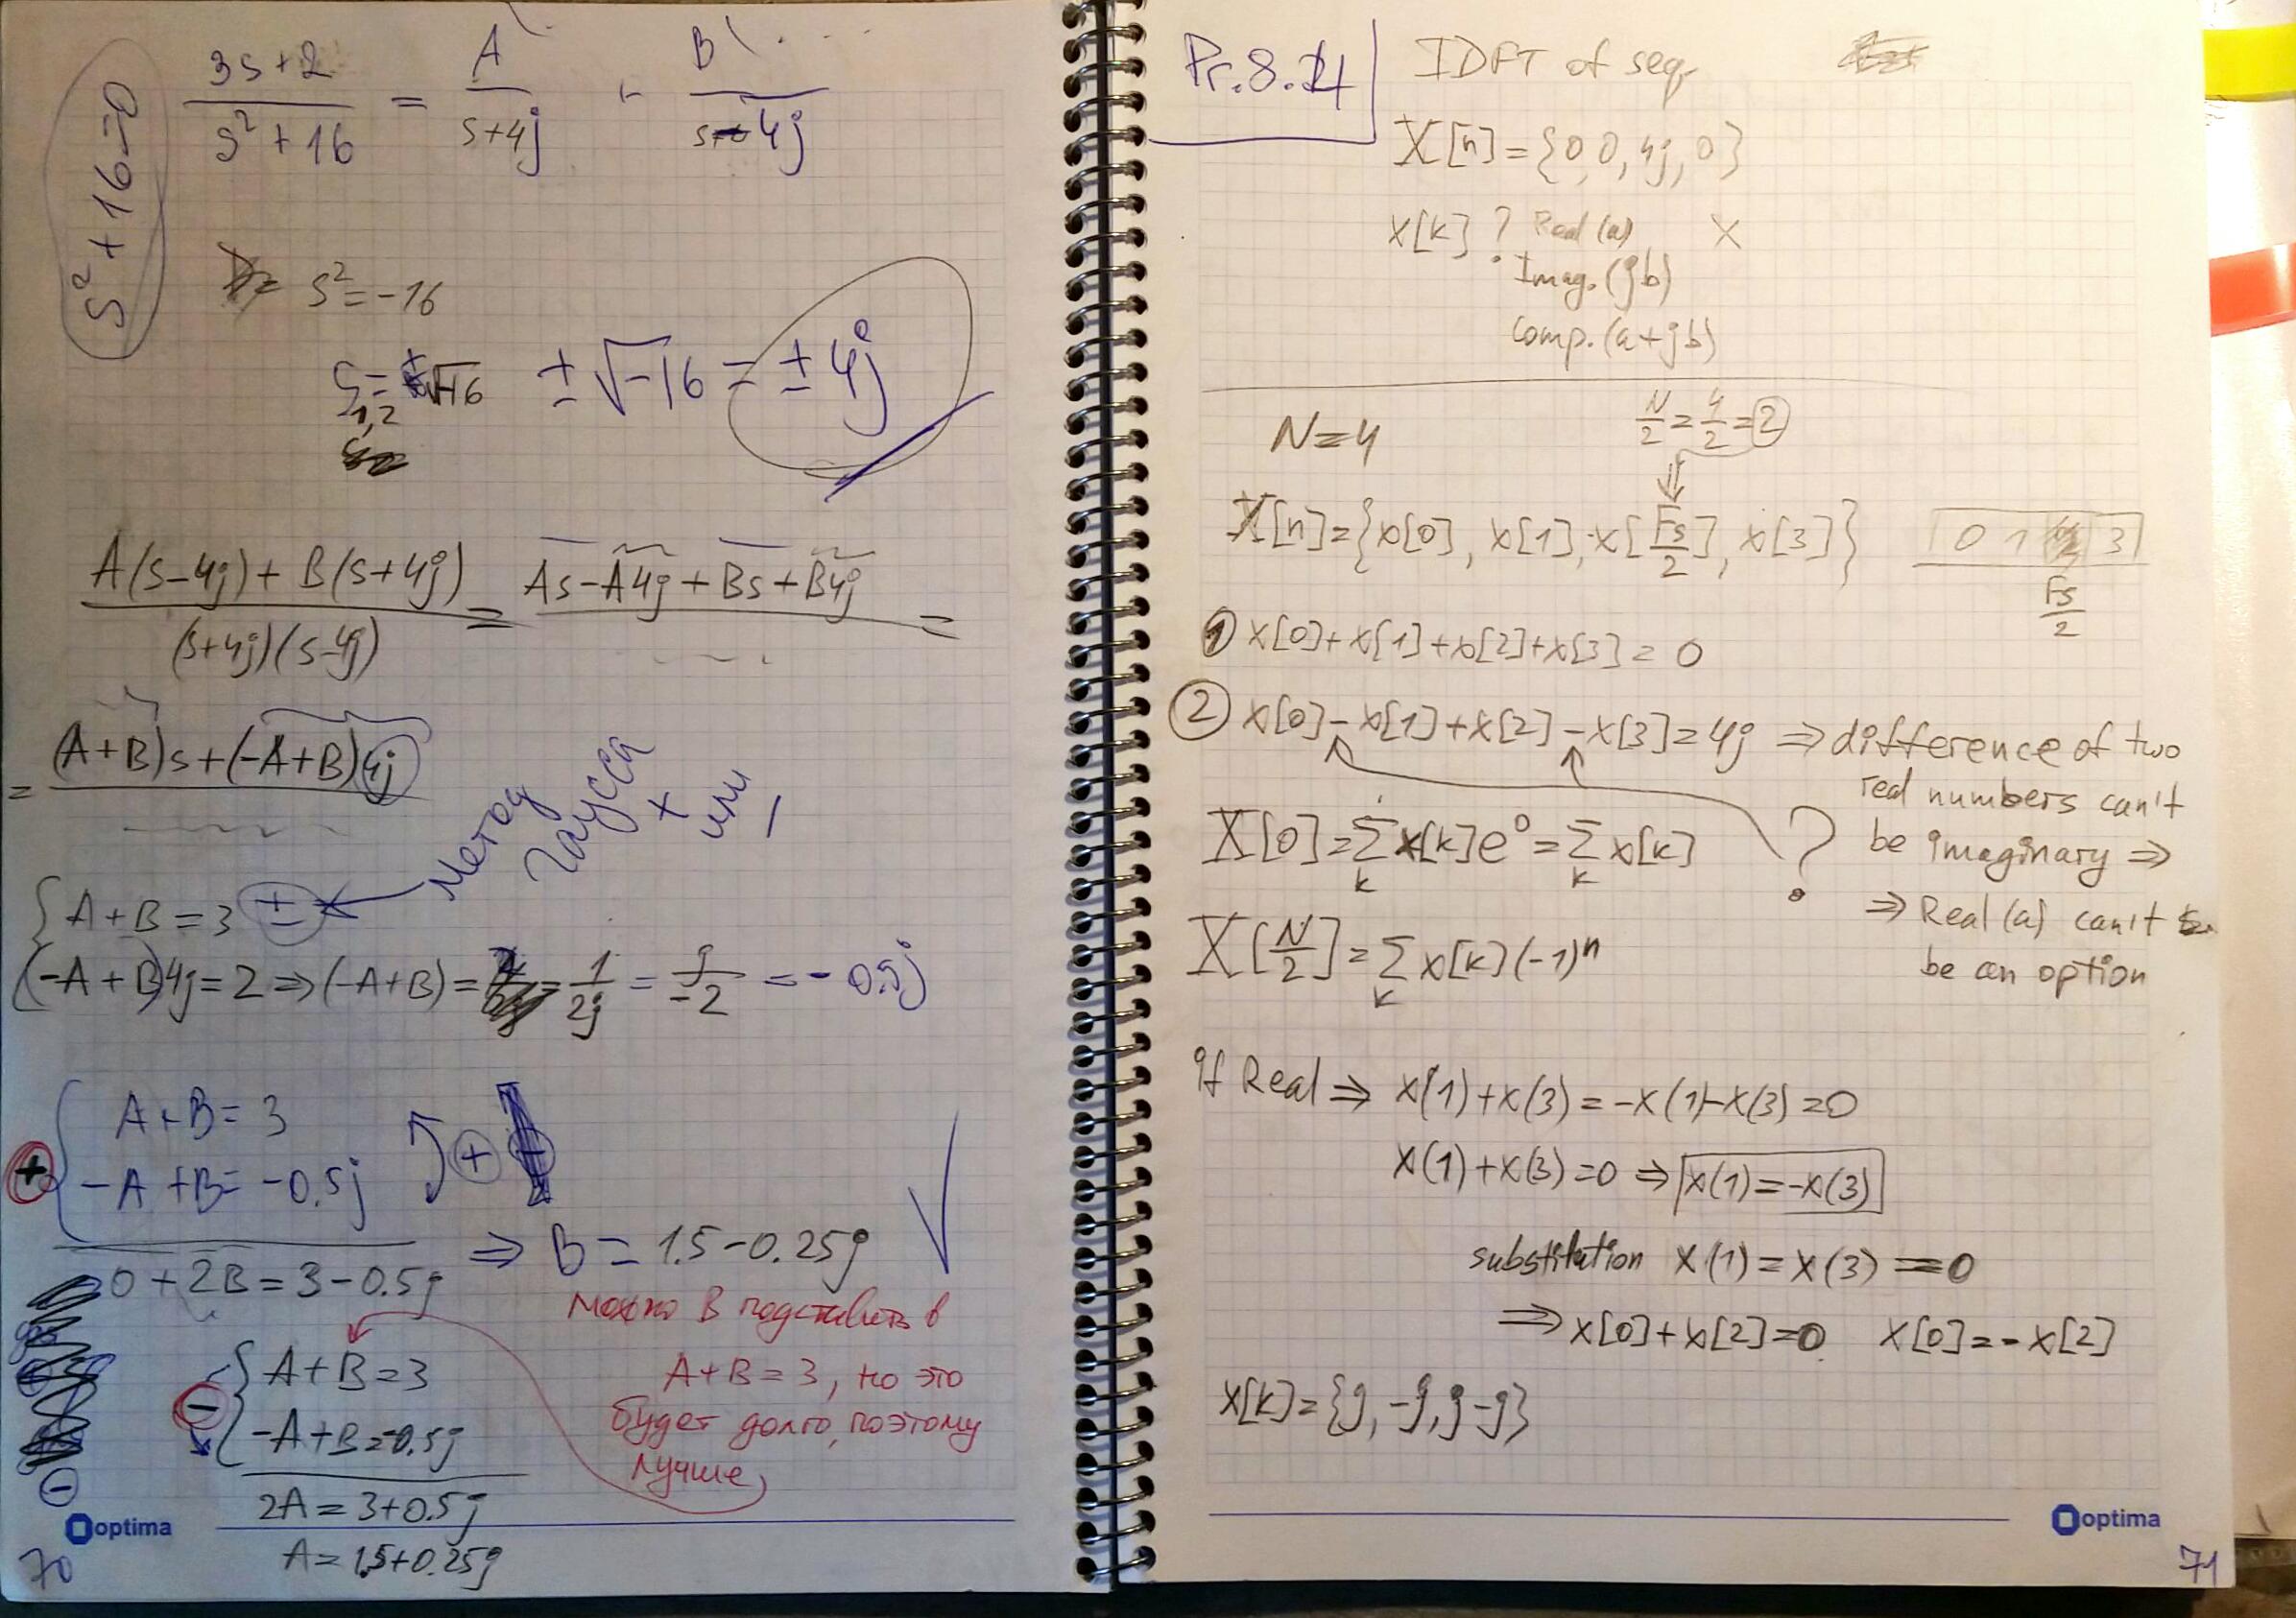 S²+16=0
3s+2 / s²+16 = A / s+4j + B / s-4j
s²=-16
S₁,₂=±√-16 ±√-16 = ±4j
A(s-4j)+B(s+4j) / (s+4j)(s-4j) = As-A4j+Bs+B4j =
= (A+B)s+(-A+B)4j
Метод
Гаусса
+ или -
{ A+B=3 ±
(-A+B)4j=2⇒(-A+B)= = 1/2j = j/-2 = -0.5j
A+B=3
-A+B=-0.5j
+
0+2B=3-0.5j ⇒ B=1.5-0.25j √
можно B подставить в
A+B=3, но это
будет долго, поэтому
лучше
A+B=3
-A+B=-0.5j
2A=3+0.5j
A=1,5+0.25j
optima
70
Pr.8.14
IDFT of seq.
X[n]={0,0,4j,0}
x[k] ? Real (a) X
Imag.(jb)
Comp.(a+jb)
N=4
N/2=4/2=2
X[n]={x[0], x[1], x[Fs/2], x[3]}
0 1 3
Fs/2
① x[0]+x[1]+x[2]+x[3]=0
② x[0]-x[1]+x[2]-x[3]=4j ⇒ difference of two
real numbers can't
be imaginary ⇒
⇒ Real (a) can't
be an option
?
X[0]=Σ x[k]e⁰=Σ x[k]
k k
X[N/2]=Σ x[k](-1)ⁿ
k
if Real ⇒ x(1)+x(3)=-x(1)-x(3)=0
x(1)+x(3)=0 ⇒ x(1)=-x(3)
substitution x(1)=x(3)=0
⇒x[0]+x[2]=0 x[0]=-x[2]
x[k]={j,-j,j-j}
optima
71